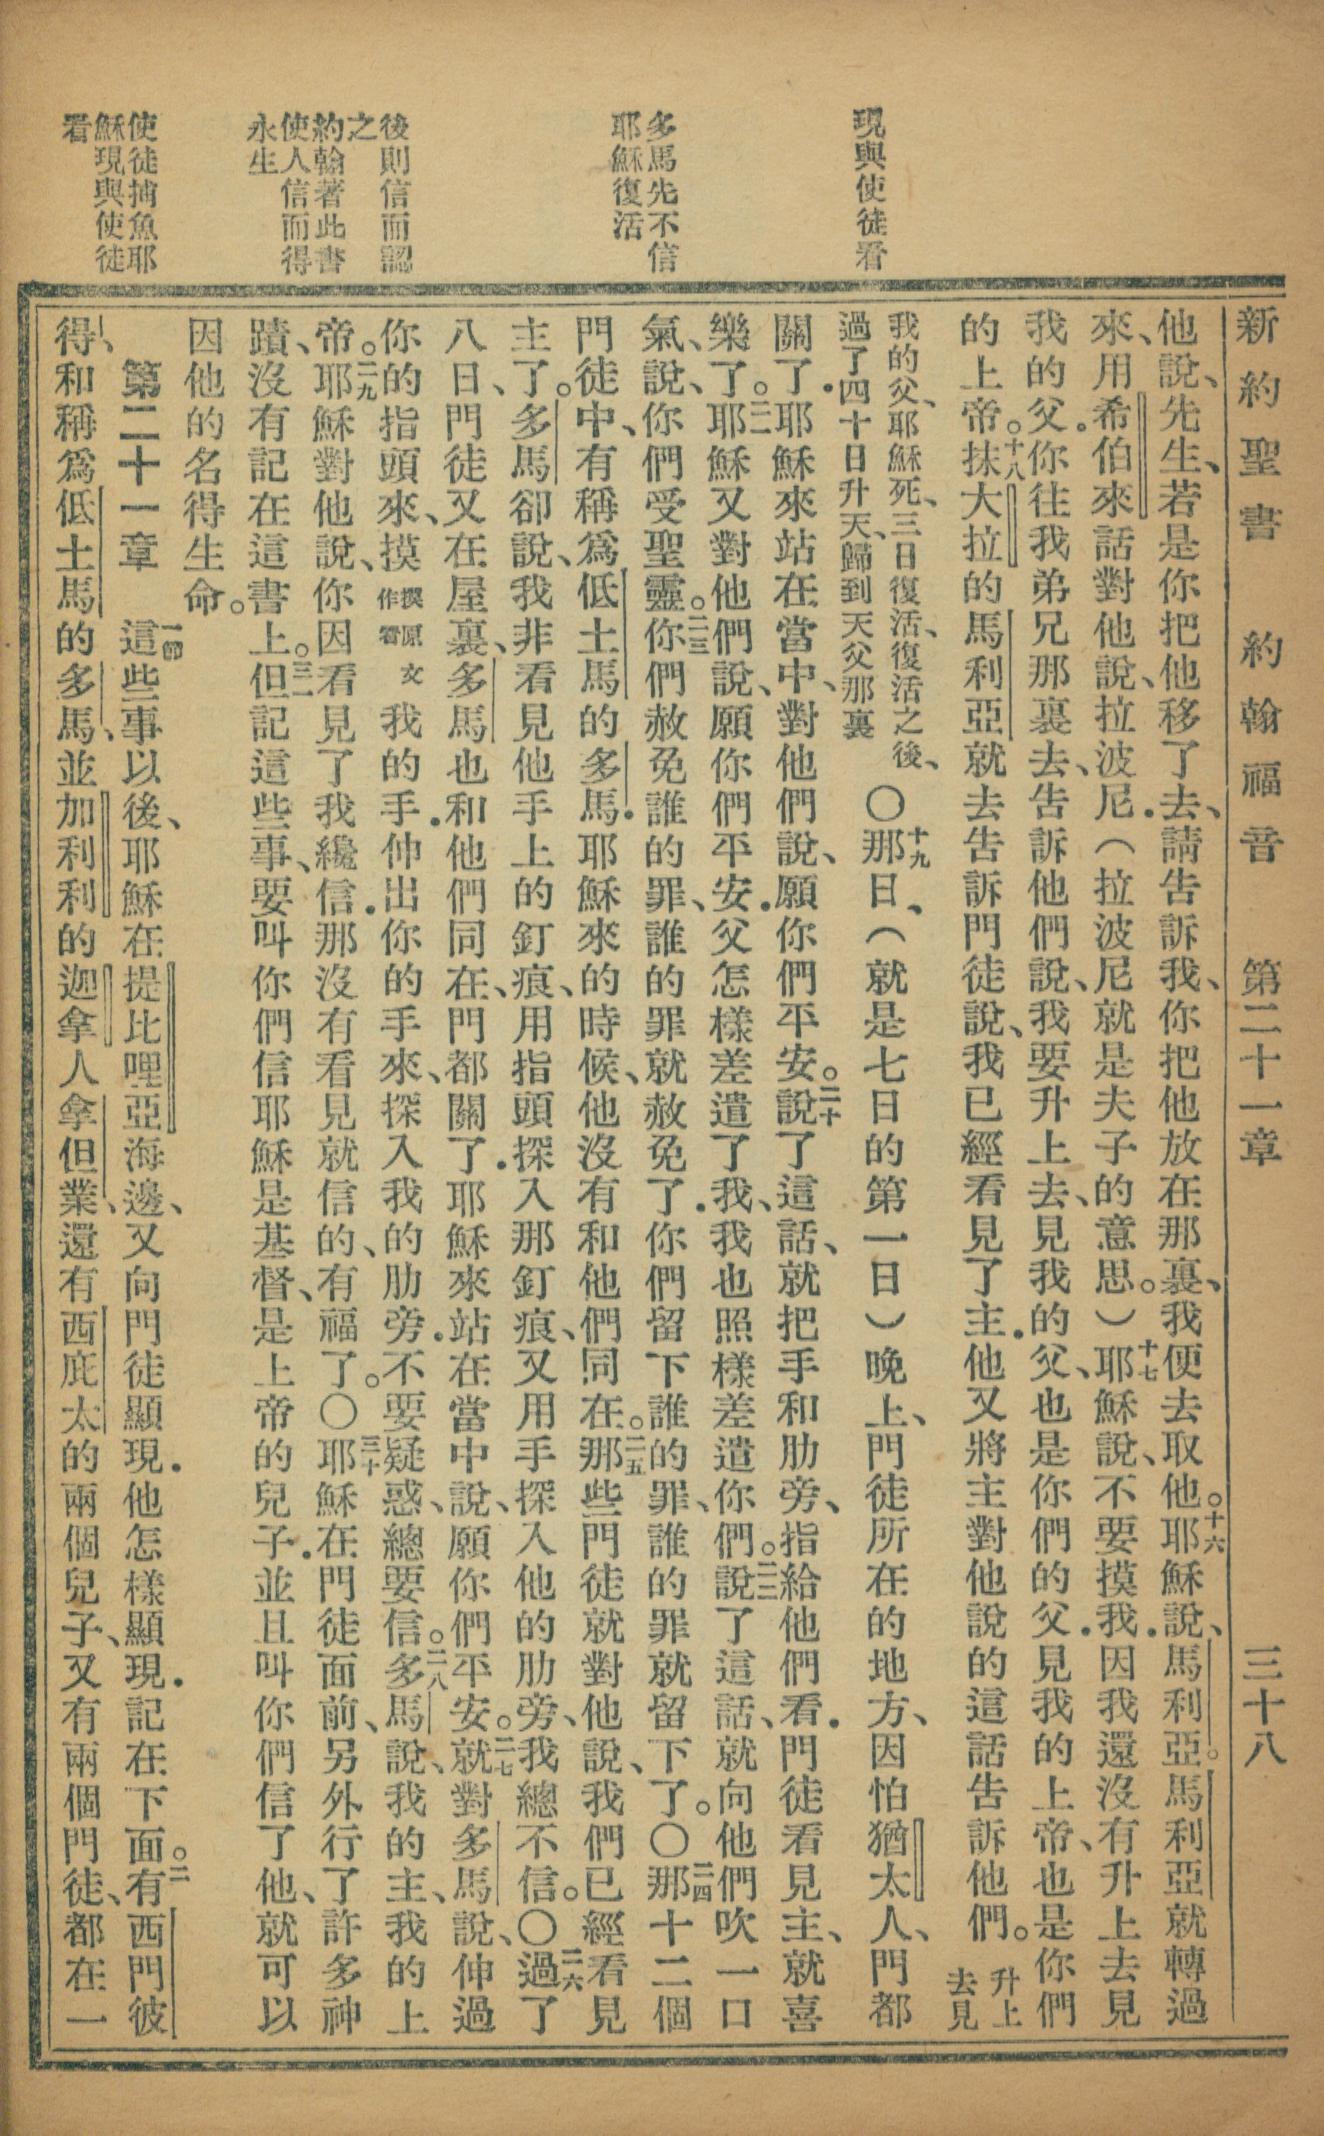 新約聖書 約翰福音 第二十一章 三十八
現與使徒看
多馬先不信
耶穌復活
後則信而認
之
約翰著此書
使人信而得
永生
使徒捕魚耶
穌現與使徒
看
他說、先生、若是你把他移了去、請告訴我、你把他放在那裏、我便去取他。十六耶穌說、馬利亞。馬利亞就轉過
來、用希伯來話對他說、拉波尼．（拉波尼就是夫子的意思。）十七耶穌說、不要摸我．因我還沒有升上去見
我的父．你往我弟兄那裏去、告訴他們說、我要升上去、見我的父、也是你們的父．見我的上帝、也是你們
的上帝。十八抹大拉的馬利亞就去告訴門徒說、我已經看見了主．他又將主對他說的這話告訴他們。升上
去見
我的父、耶穌死、三日復活、復活之後、
過了四十日升天、歸到天父那裏
〇十九那日、（就是七日的第一日）晚上、門徒所在的地方、因怕猶太人、門都
關了．耶穌來站在當中、對他們說、願你們平安。二十說了這話、就把手和肋旁、指給他們看．門徒看見主、就喜
樂了。二一耶穌又對他們說、願你們平安．父怎樣差遣了我、我也照樣差遣你們。二二說了這話、就向他們吹一口
氣、說、你們受聖靈。二三你們赦免誰的罪、誰的罪就赦免了．你們留下誰的罪、誰的罪就留下了。〇二四那十二個
門徒中、有稱爲低土馬的多馬．耶穌來的時候、他沒有和他們同在。二五那些門徒就對他說、我們已經看見
主了。多馬卻說、我非看見他手上的釘痕、用指頭探入那釘痕、又用手探入他的肋旁、我總不信。〇二六過了
八日、門徒又在屋裏、多馬也和他們同在、門都關了．耶穌來站在當中說、願你們平安。二七就對多馬說、伸過
你的指頭來、摸摸原文作看我的手．伸出你的手來、探入我的肋旁．不要疑惑、總要信。二八多馬說、我的主、我的上
帝。二九耶穌對他說、你因看見了我纔信．那沒有看見就信的、有福了。〇三十耶穌在門徒面前、另外行了許多神
蹟、沒有記在這書上。三一但記這些事、要叫你們信耶穌是基督、是上帝的兒子．並且叫你們信了他、就可以
因他的名得生命。
第二十一章 一節這些事以後、耶穌在提比哩亞海邊、又向門徒顯現．他怎樣顯現．記在下面。二有西門彼
得、和稱爲低土馬的多馬、並加利利的迦拿人拿但業、還有西庇太的兩個兒子、又有兩個門徒、都在一